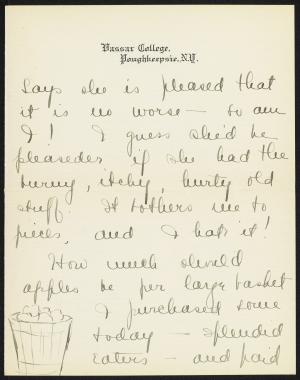 Vassar College,
Poughkeepsie, N.Y.
says she is pleased that
it is no worse — so am
I! I guess she'd be
pleaseder if she had the
burny, itchy, hurty old
stuff. It bothers me to
pieces, and I hate it!
How much should
apples be per large basket
I purchased some
today — splendid
eaters — and paid